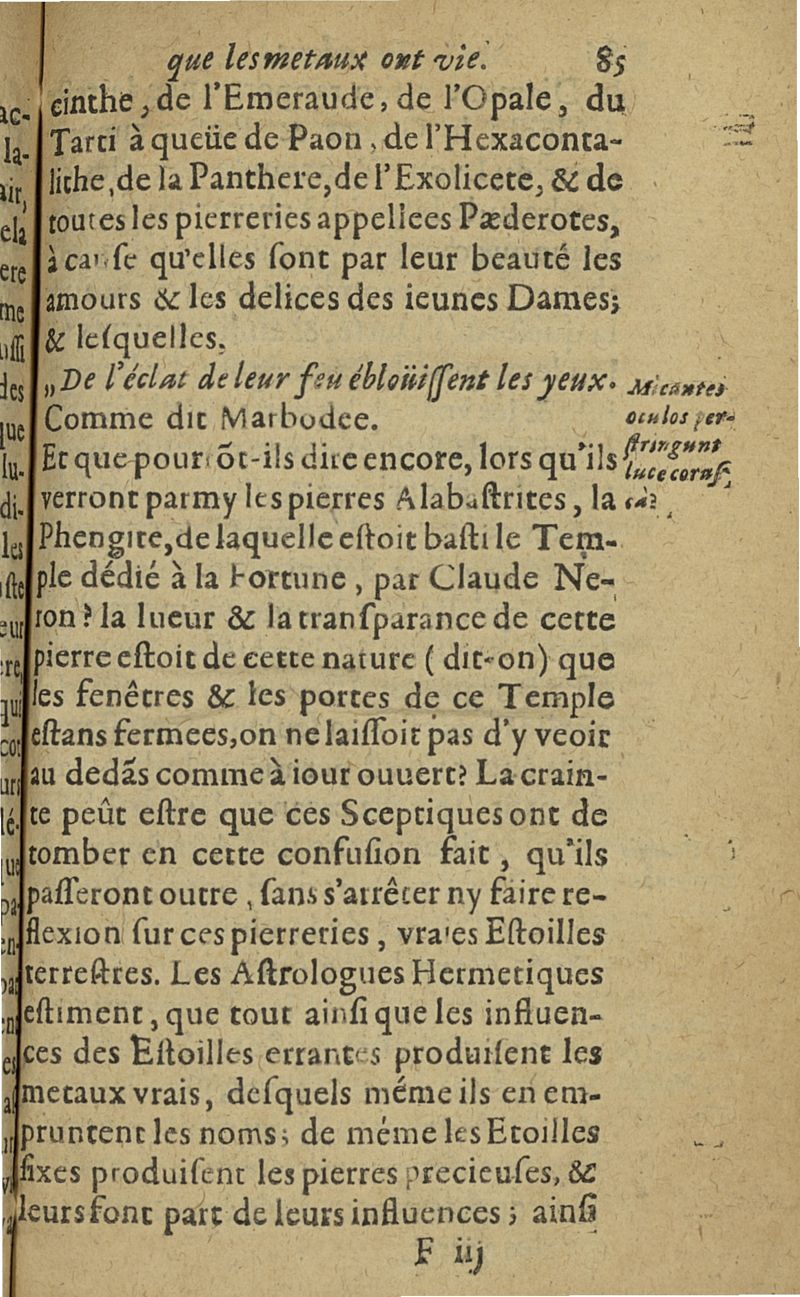 que les metaux ont vie. 85
cinthe, de l'Emeraude, de l'Opale, du
Tarti à queüe de Paon, de l'Hexaconta-
lithe, de la Panthere, de l'Exolicete, & de
toutes les pierreries appellees Pæderotes,
à cause qu'elles ſont par leur beauté les
amours & les delices des ieunes Dames;
& leſquelles.
„De l'éclat de leur feu éblouiſſent les yeux.
Comme dit Marbodee.
Micantes
oculos per-
ſtringunt
luce
Et que pourrõt-ils dire encore, lors qu'ils
verront parmy les pierres Alabaſtrites, la
Phengite, de laquelle eſtoit baſti le Tem-
ple dédié à la Fortune, par Claude Ne-
ron? la lueur & la tranſparance de cette
pierre eſtoit de cette nature ( dit-on) que
les fenêtres & les portes de ce Temple
eſtans fermees, on ne laiſſoit pas d'y veoir
au dedãs comme à iour ouuert? La crain-
te peût eſtre que ces Sceptiques ont de
tomber en cette confuſion fait, qu'ils
paſſeront outre, ſans s'arrêter ny faire re-
flexion ſur ces pierreries, vraies Eſtoilles
terreſtres. Les Aſtrologues Hermetiques
eſtiment, que tout ainſi que les influen-
ces des Eſtoilles errantes produiſent les
metaux vrais, deſquels méme ils en em-
pruntent les noms; de méme les Etoilles
fixes produiſent les pierres precieuſes, &
leurs font part de leurs influences; ainſi
F iij